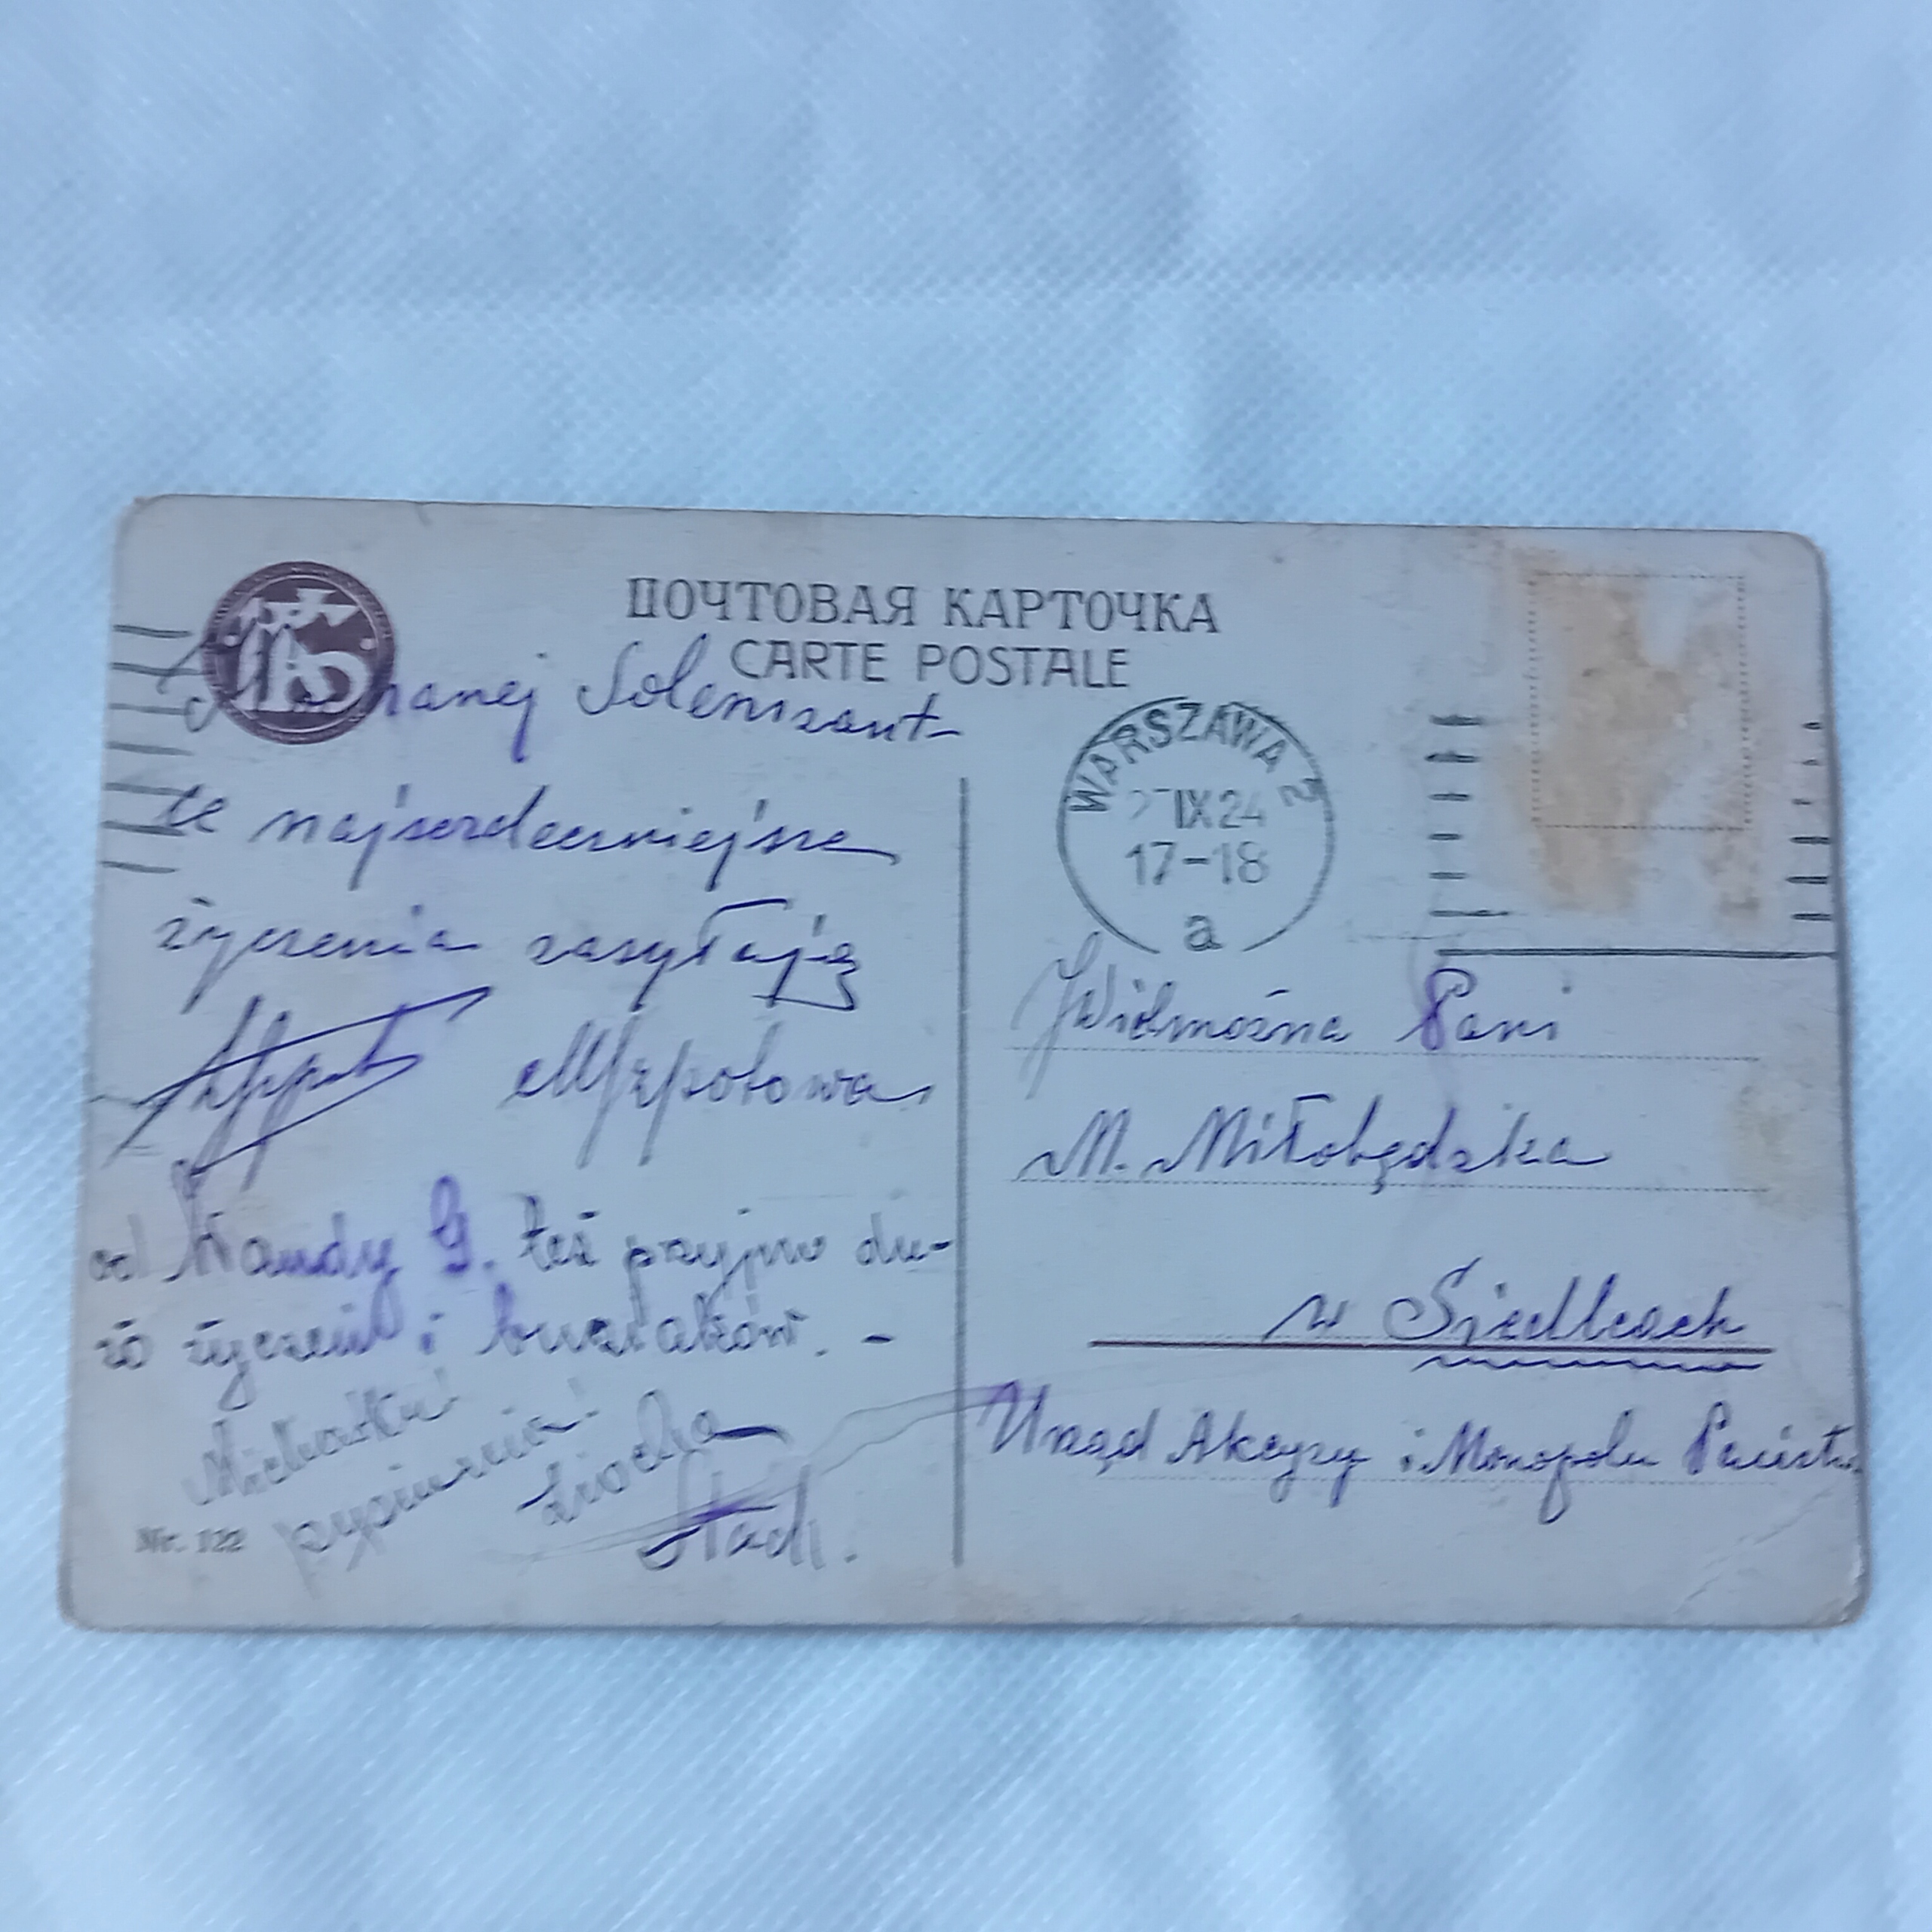 ПОЧТОВАЯ КАРТОЧКА
CARTE POSTALE
Kochanej Solenizant-
ce najserdeczniejsze
życzenia zasyłają
od Wandy G. też przyjm du-
żo życzeń i buziaków. -
Ziocha
Stadl.
Nr. 122
WARSZAWA 2
IX 24
17-18
a
JWielmożna Pani
M. Miłobędzka
w Siedlcach
Urząd Akcyzy i Monopolu Państw.